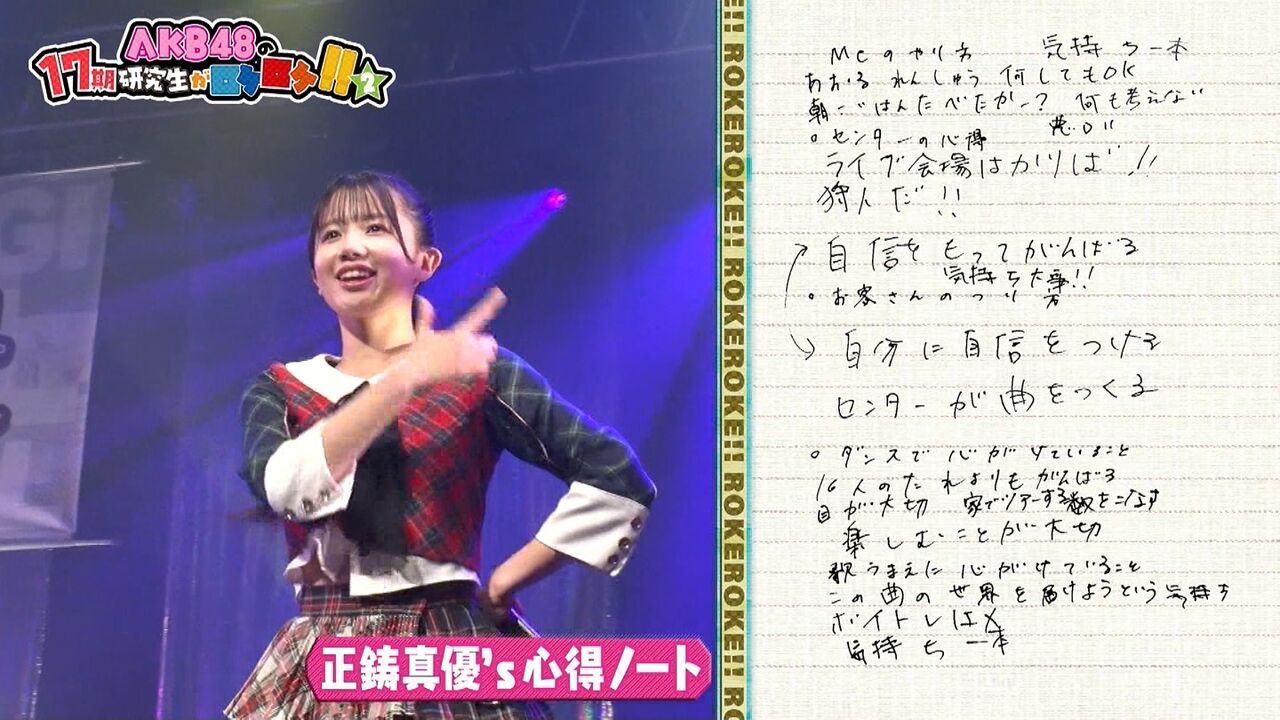 AKB48の
17期研究生がロケロケ!!2
ROKEROKE!! ROKEROKE!! ROKEROKE!! ROKEROKE!! RO
MCのやり方　気持ち一本
あおる れんしゅう 何してもOK
朝ごはんたべたかー? 何も考えない
。センターの心得
ライブ会場はかりば!!
狩人だ!!
自信をもってがんばる
気持ち大事!!
。お客さんのつり方
自分に自信をつける
センターが曲をつくる
。ダンスで心がけていること
16人のだれよりもがんばる
目が大切 家でツアーする 数をこなす
楽しむことが大切
歌うまえに心がけていること
この曲の世界を届けようという気持ち
ボイトレは×
気持ち一本
正鋳真優's心得ノート